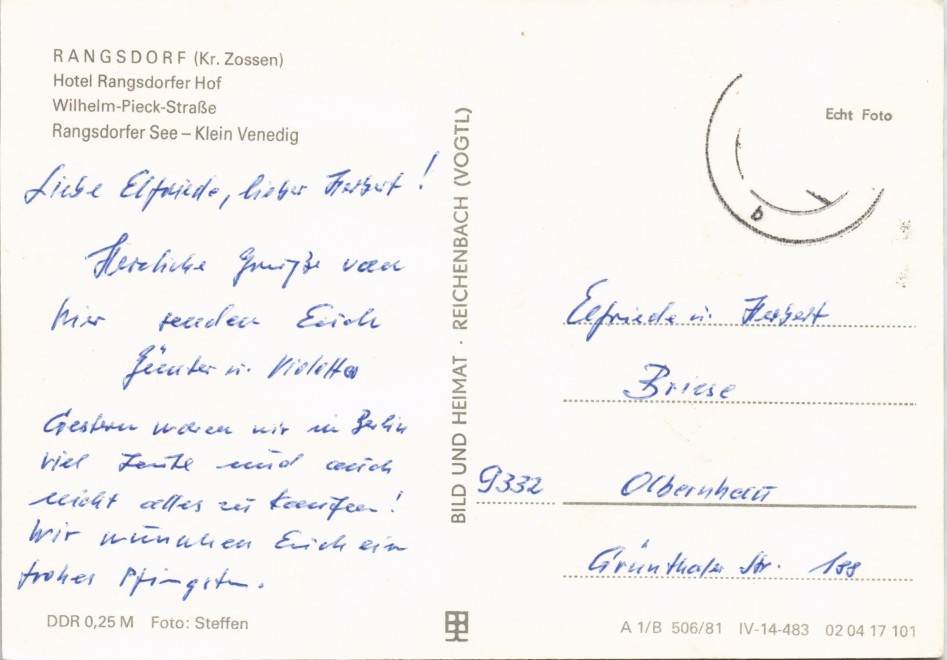 RANGSDORF (Kr. Zossen)
Hotel Rangsdorfer Hof
Wilhelm-Pieck-Straße
Rangsdorfer See – Klein Venedig
Liebe Elfriede, lieber Herbert!
Herzliche Grüße von
hier senden Euch
Günter u. Violetta
Gestern waren wir in Berlin
viel Leute und auch
nicht alles zu kaufen!
Wir wünschen Euch ein
frohes Pfingsten.
DDR 0,25 M Foto: Steffen
BILD UND HEIMAT · REICHENBACH (VOGTL)
Echt Foto
b
Elfriede u. Herbert
Briese
9332 Olbernhau
Grünthaler Str. 188
A 1/B 506/81 IV-14-483 02 04 17 101